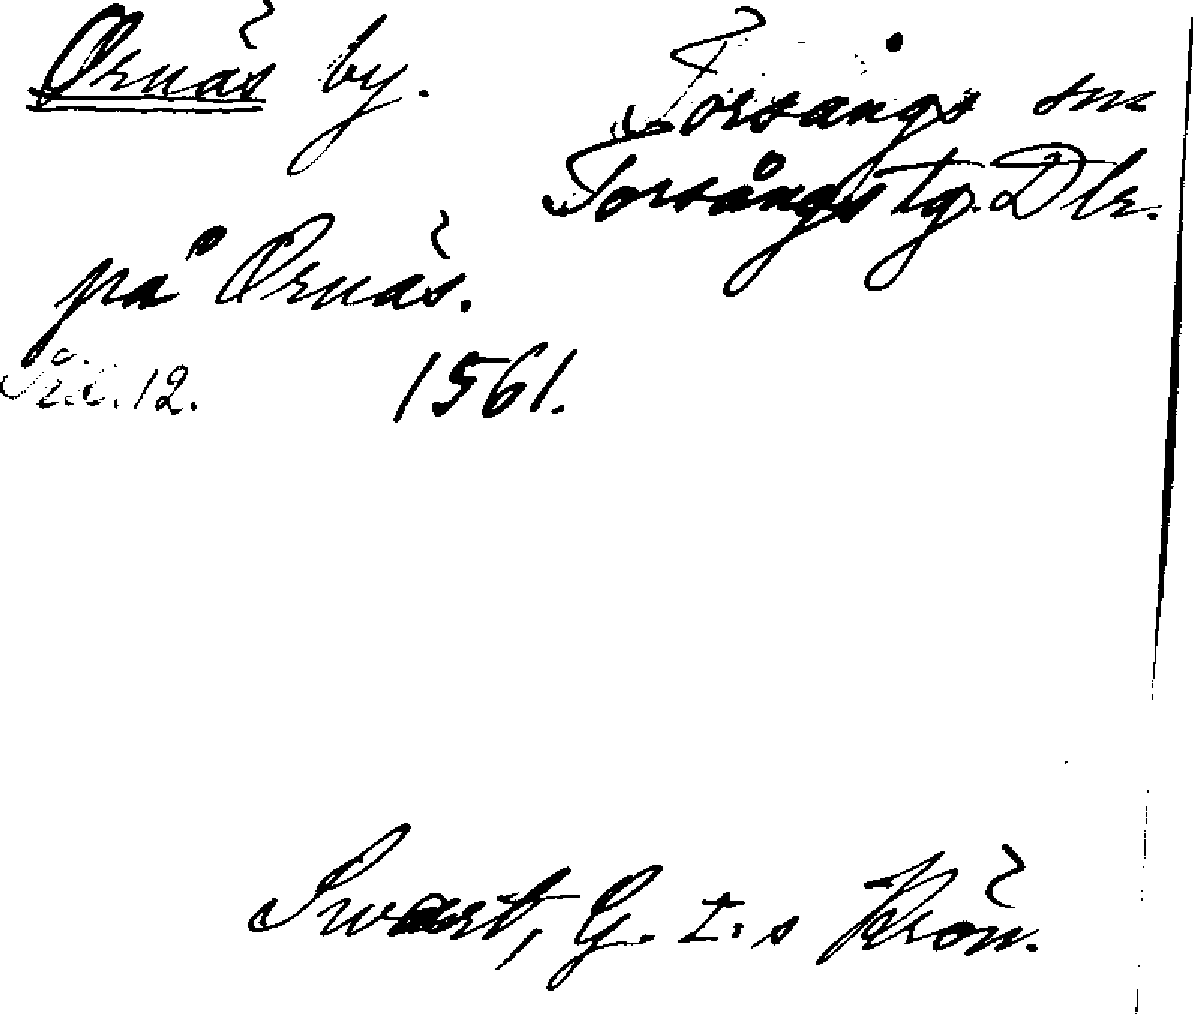 Ornäs by.
Torsångs sn
Torsångs tg. Dlr.
på Ornäs.
Sid. 12. 1561.
Swart, G. I:s Krön.